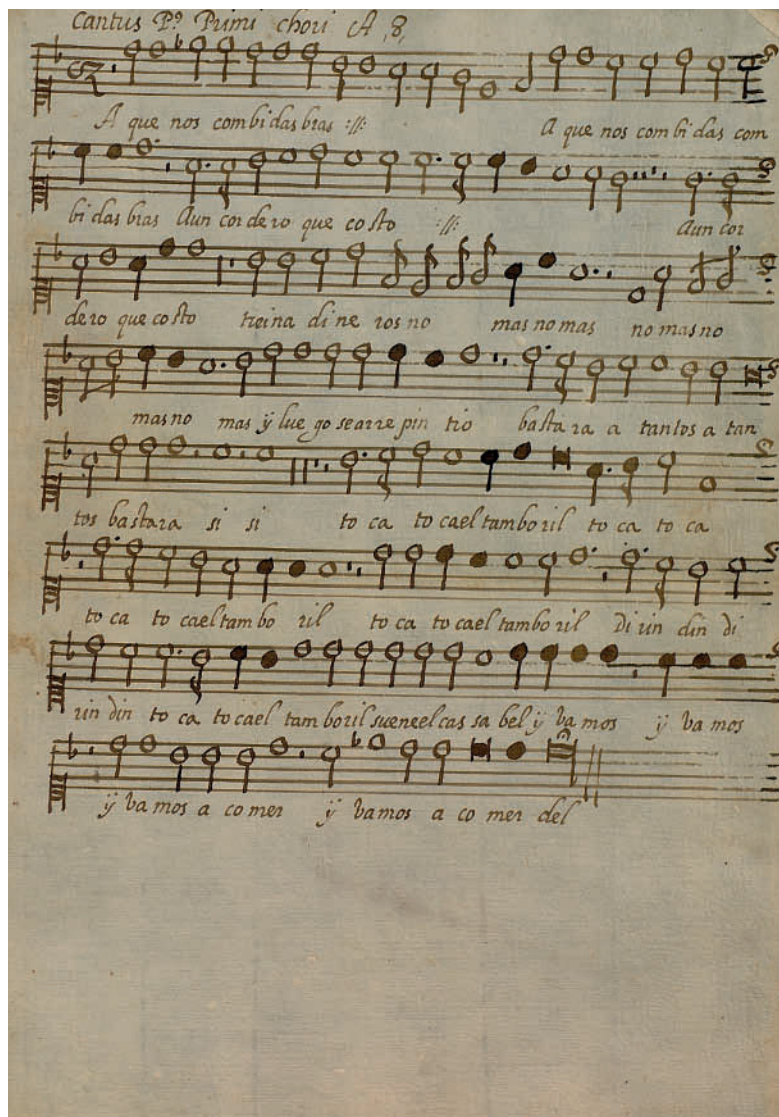 Cantus Pº Primi chori A 8
A que nos combidas bras ://: A que nos combidas com
bidas bras Aun cordero que costo ://: Aun cor
dero que costo treina dineros no mas no mas no mas no
mas no mas ÿ luego searrepintio bastara a tantos a tan
tos bastara si si toca tocael tamboril toca toca
toca tocael tamboril toca tocael tamboril Di rin din di
rin din toca tocael tamboril sueneel cassabel ÿ bamos ÿ bamos
ÿ bamos a comer ÿ bamos a comer del